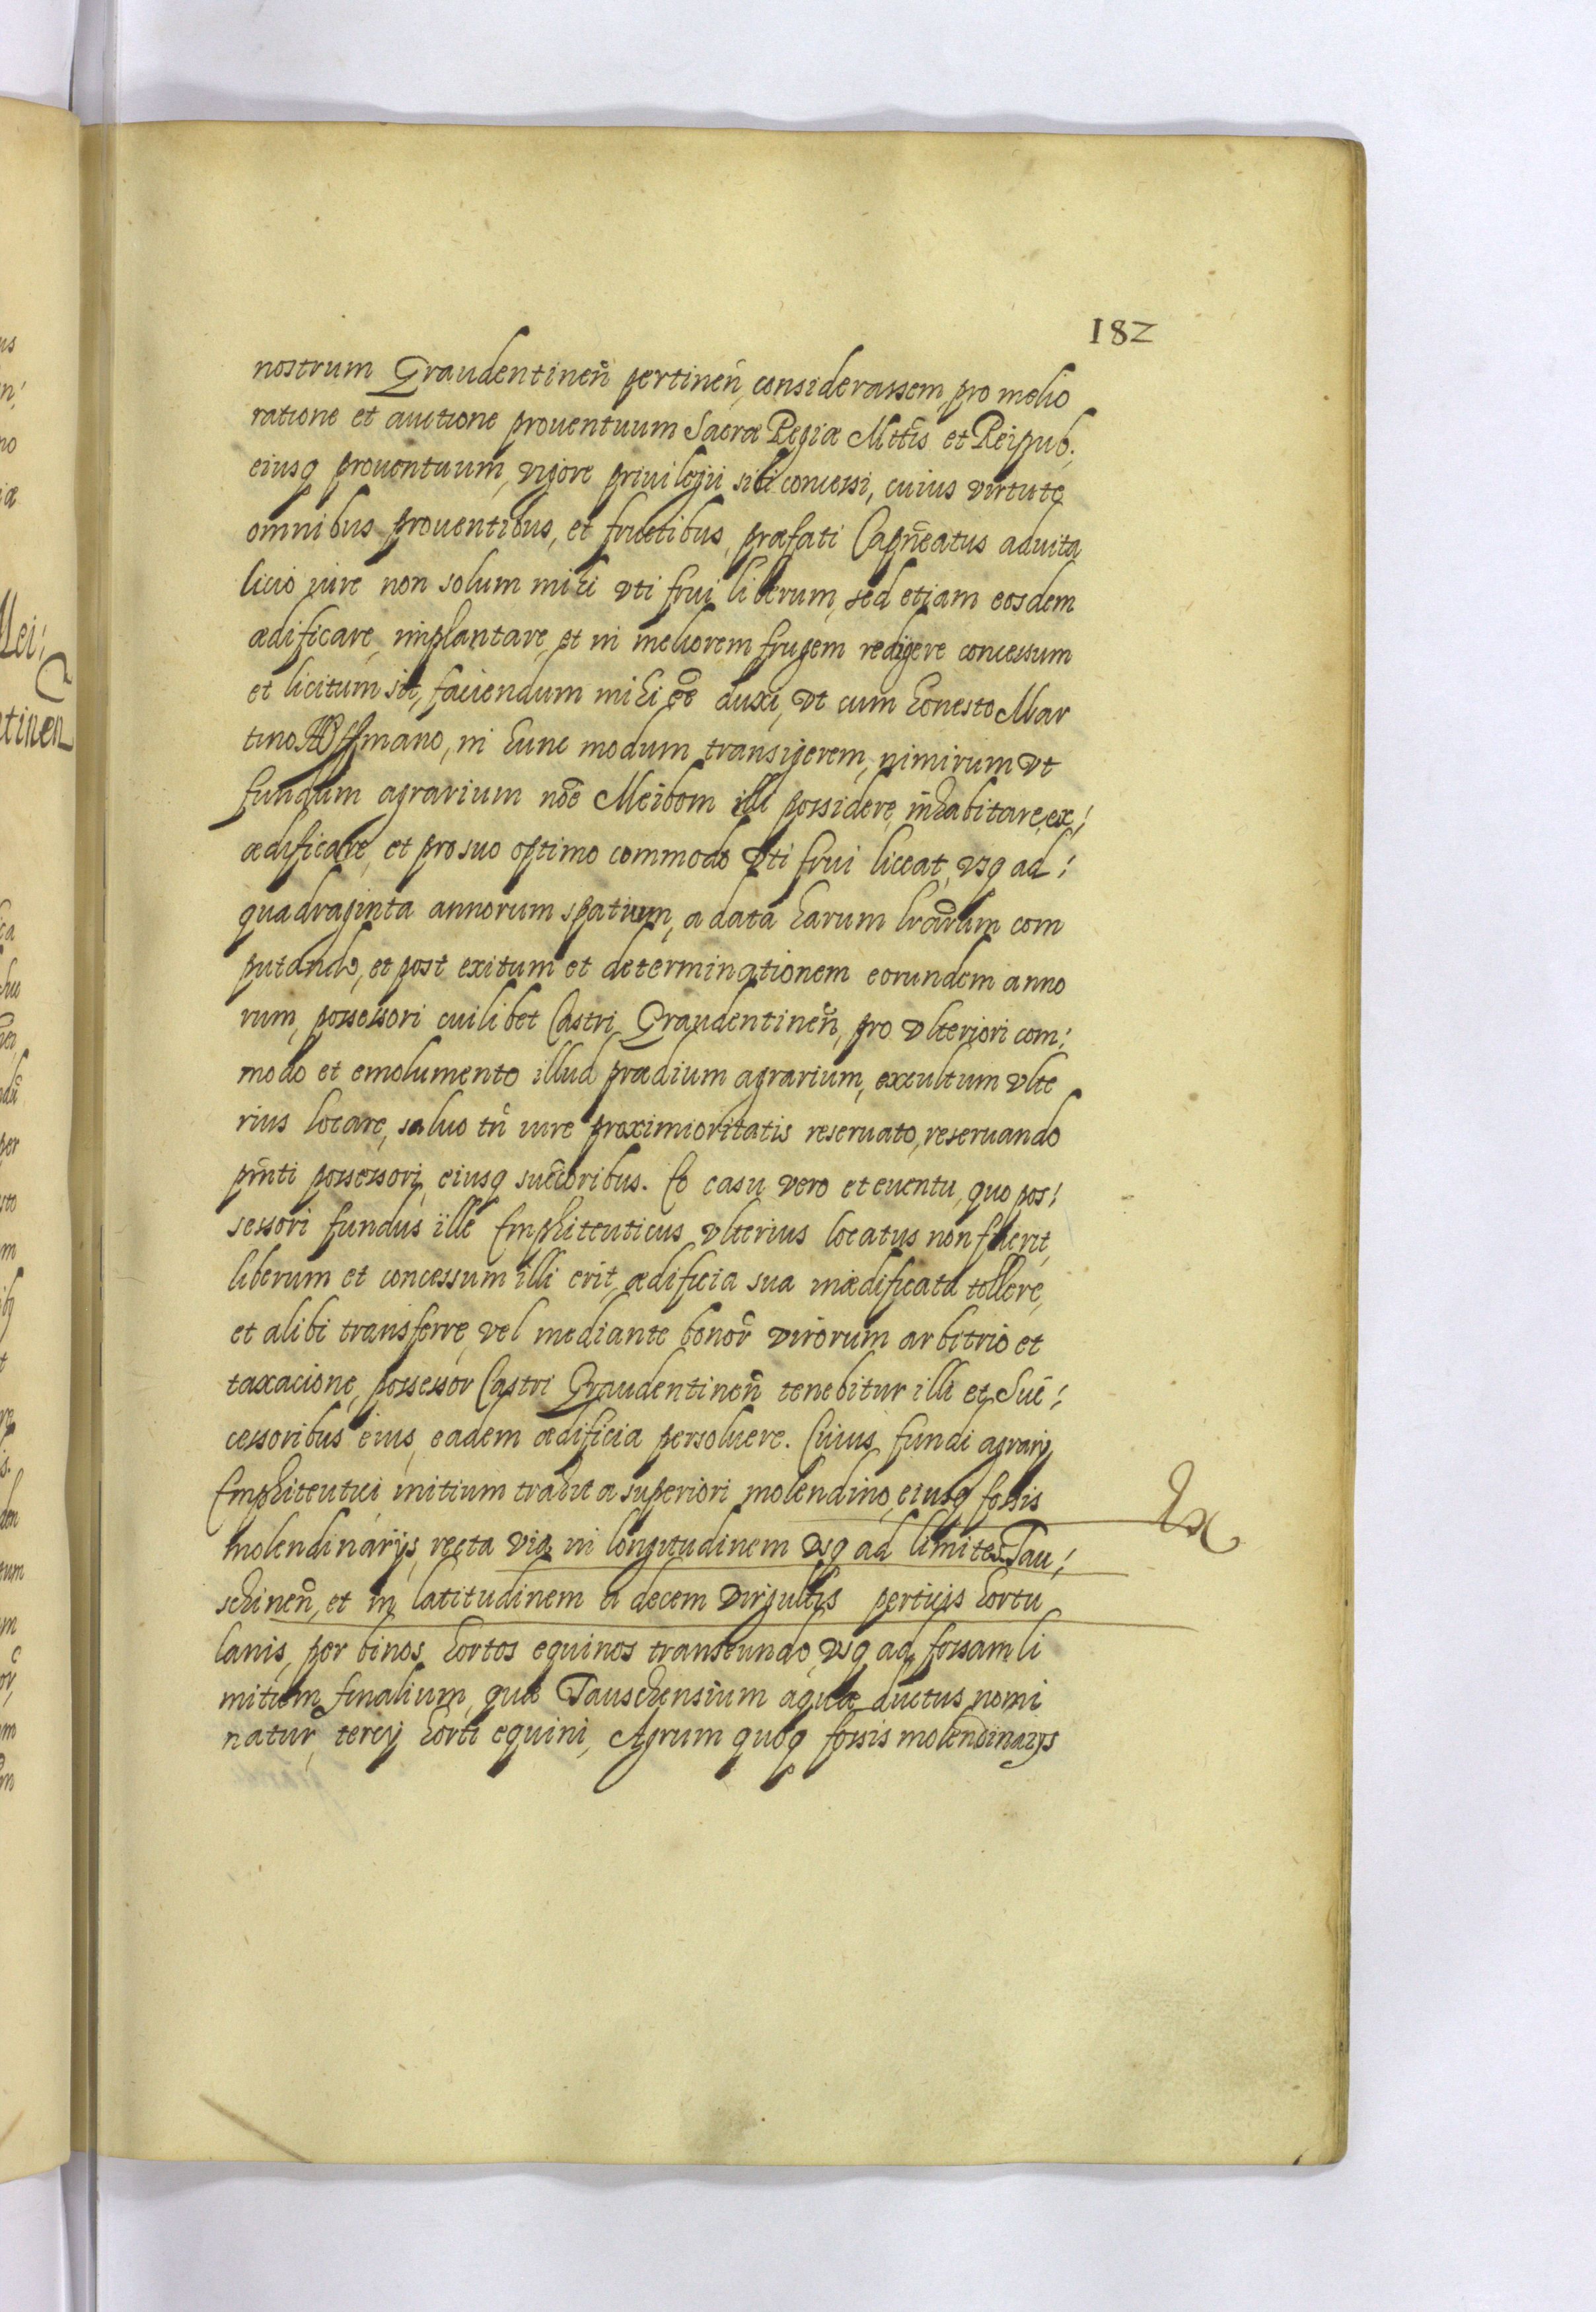 182
nostrum Graudentinen̄ pertinen̄, considerassem, pro melio
ratione et auctione prouentuum Sacræ Regiæ Mttis et Reipub:
eiusq prouentuum, vigore priuilegii sibi concessi, cuius virtute
omnibus prouentibus, et fructibus, præfati Capn̄eatus aduita
licio iure non solum mihi vti frui liberum, sed etiam eosdem
ædificare, implantare, et in meliorem frugem redigere concessum
et licitum sit, faciendum mihi ee̅ duxi, vt cum honesto Mar
tino, in hunc modum transigerem, nimirum vt
fundum agrarium noe̅ Meibom illi possidere, inhabitare, ex:
ædificare, et pro suo optimo commodo vti frui liceat, vsq ad:
quadraginta annorum spatium, a data harum lrārum com
putando, et post exitum et determinationem eorundem anno
rum, possessori cuilibet Castri Graudentinen̄, pro vlteriori com:
modo et emolumento illud prædium agrarium, excultum vlte
rius locare, saluo tn̄ iure proximioritatis reseruato, reseruando
pn̄ti possessori, eiusq succ̄oribus. Eo casu vero et euentu, quo pos:
sessori fundus ille Emphiteuticus vlterius locatus non fuerit,
liberum et concessum illi erit, ædificia sua inædificata tollere,
et alibi transferre, vel mediante bonor̄ virorum arbitrio et
taxacione, possessor Castri Graudentinen̄ tenebitur illi et Suc̄:
cessoribus eius, eadem ædificia persoluere. Cuius fundi agrarij
Emphiteutici initium trahit a superiori molendino, eiusq fossis
molendinarijs, recta via in longitudinem vsq ad limites Tau:
schinen̄, et in latitudinem a decem virgultis perticis hortu
lanis, per binos hortos equinos transeundo, vsq ad fossam li
mitum finalium, quæ Tauschensium aquæ ductus nomi
natur, tercij horti equini, Agrum quoq fossis molendinarijs